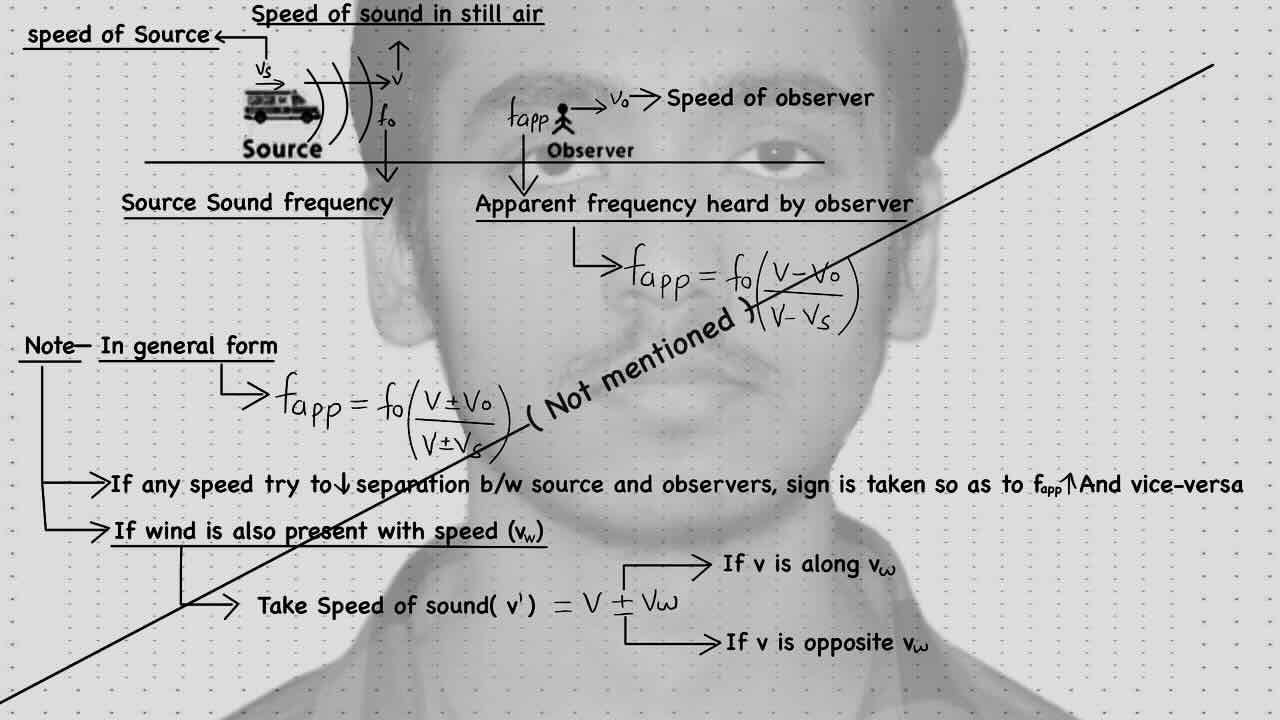 Speed of sound in still air
speed of Source
vs
v
f₀
fapp
v₀ Speed of observer
Source
Observer
Source Sound frequency
Apparent frequency heard by observer
fapp = f₀(V-V₀/V-Vs)
(Not mentioned)
Note- In general form
fapp = f₀(V±V₀/V±Vs)
If any speed try to↓separation b/w source and observers, sign is taken so as to fapp↑And vice-versa
If wind is also present with speed (vw)
If v is along vω
Take Speed of sound( v') = V ± Vω
If v is opposite vω